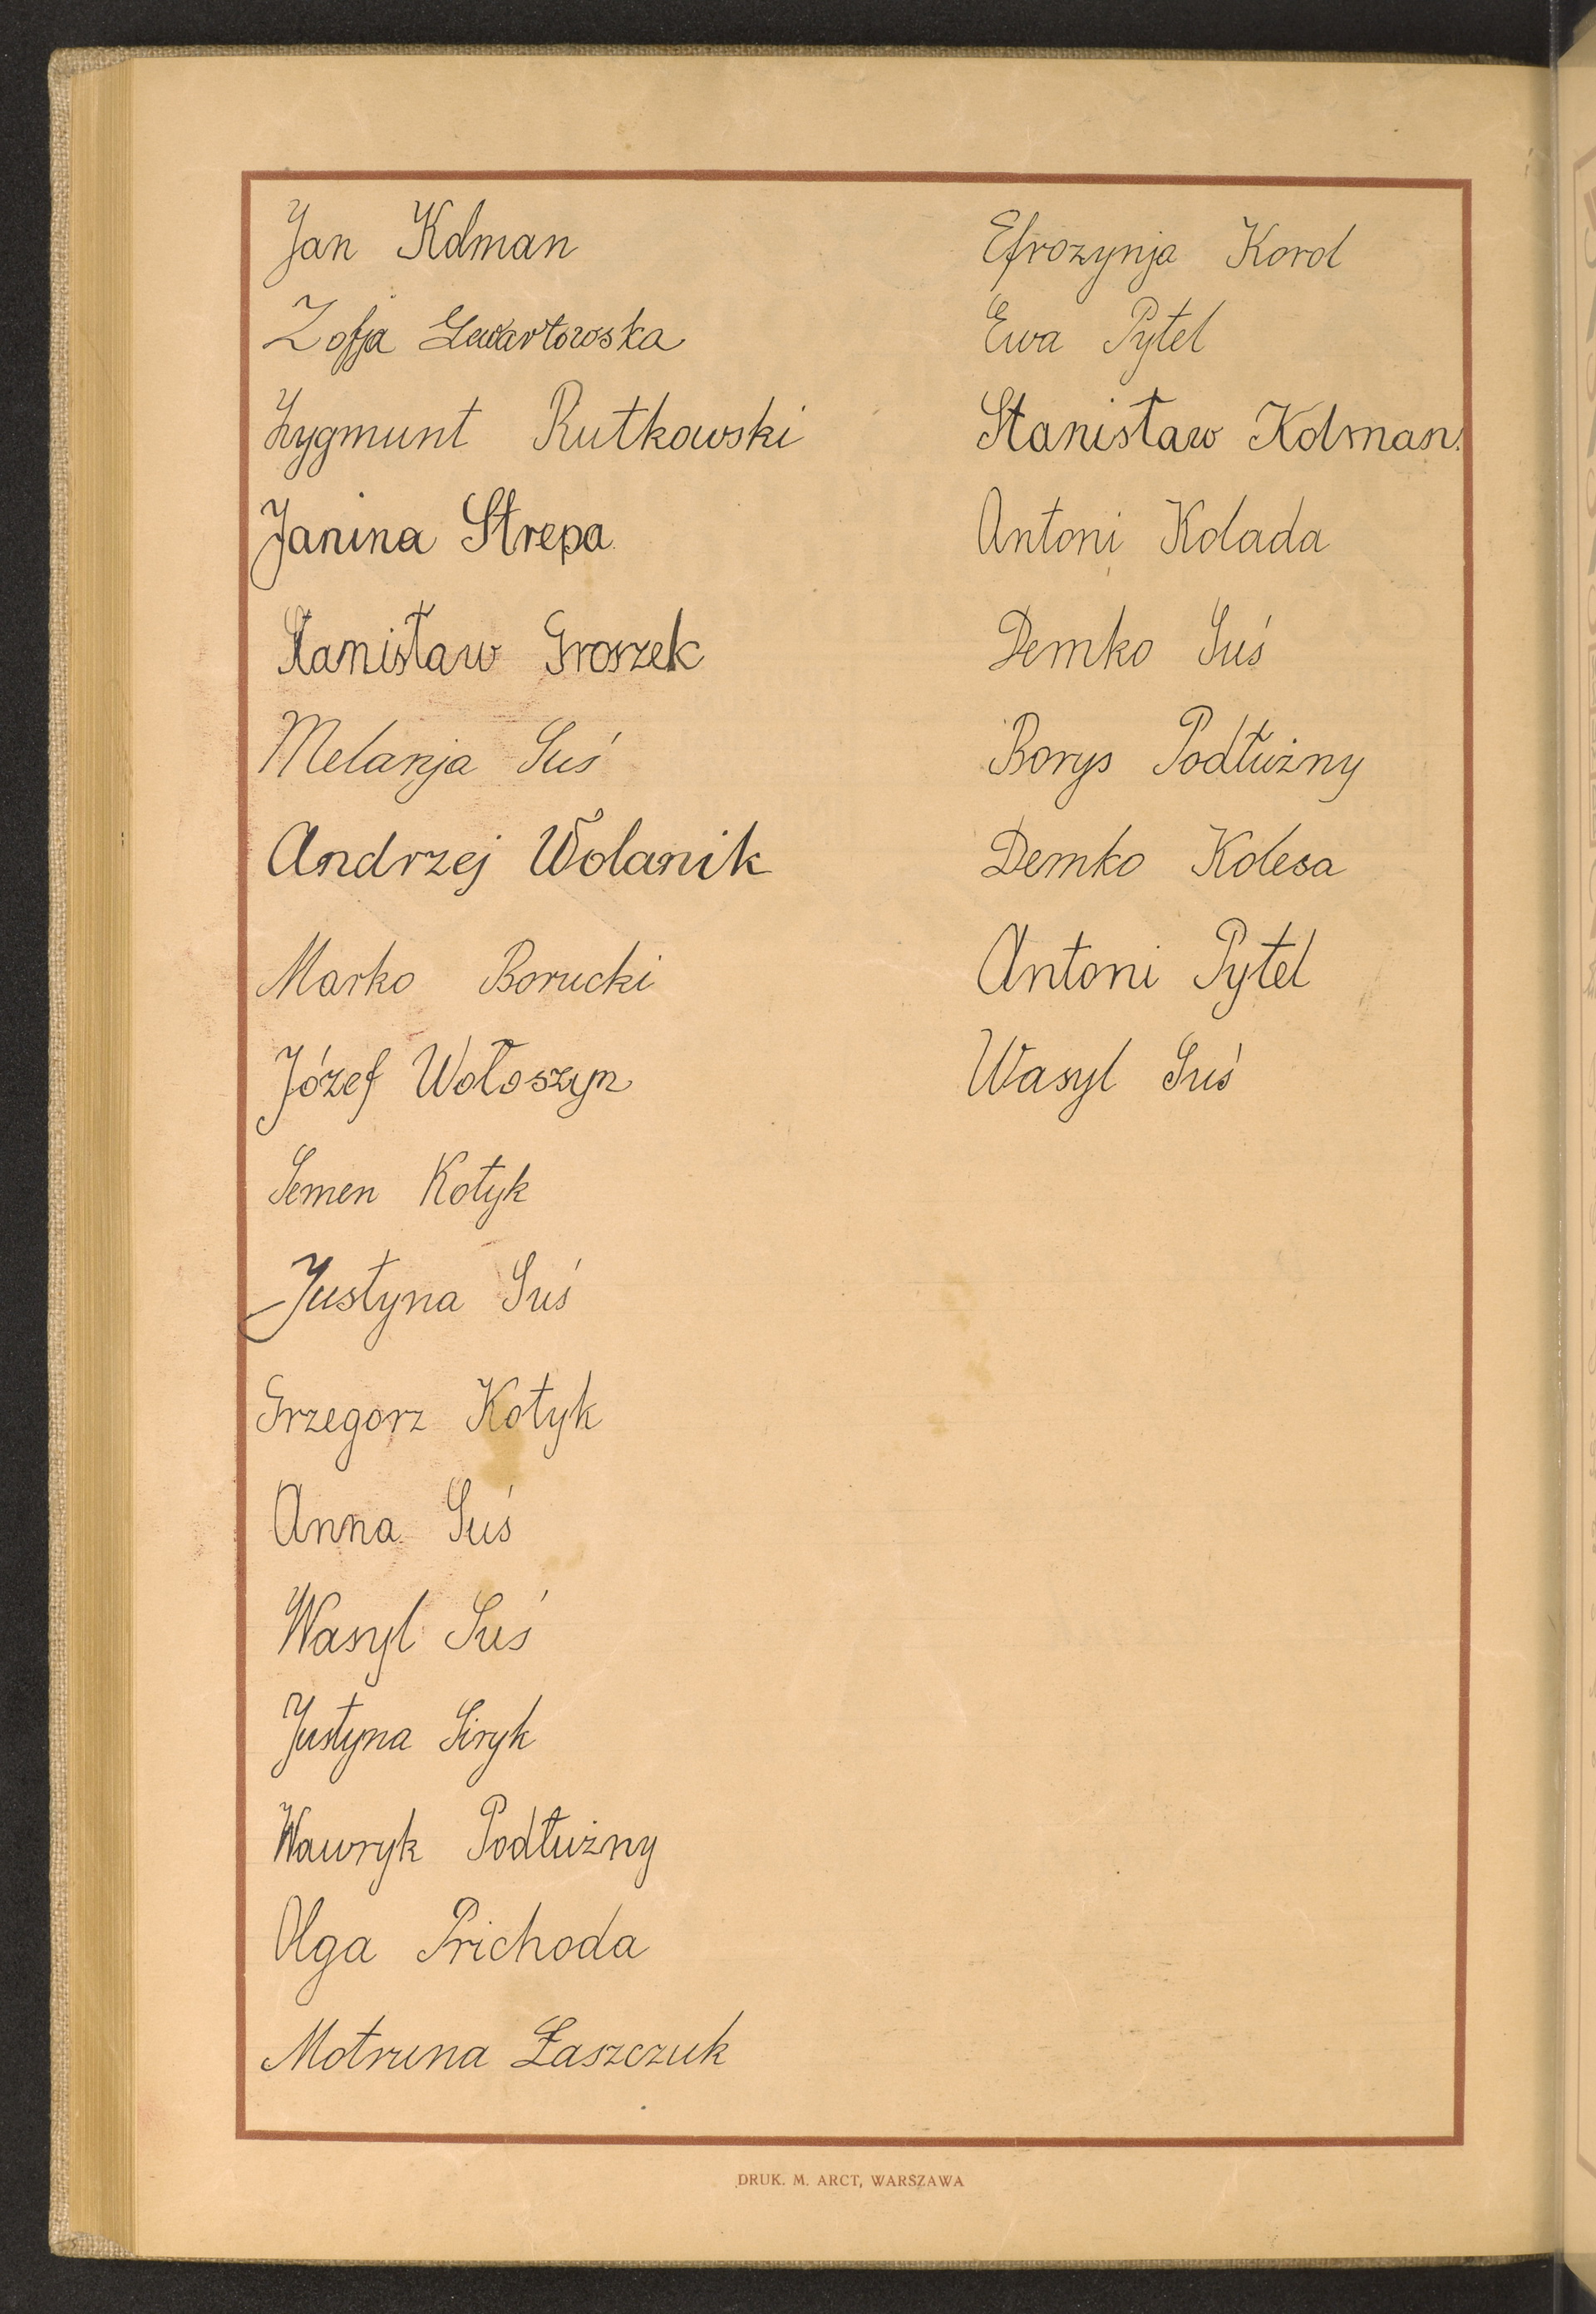 Jan Kolman
Zofja Lewartowska
Zygmunt Rutkowski
Janina Strepa
Stanisław Groszek
Melanja Suś
Andrzej Wolanik
Marko Borucki
Józef Wołoszyn
Semen Kotyk
Justyna Suś
Grzegorz Kotyk
Anna Suś
Wasyl Suś
Justyna Siryk
Wawryk Podłużny
Olga Prichoda
Motruna Łaszczuk
Efrozynja Korol
Ewa Pytel
Stanisław Kolman.
Antoni Kolada
Demko Suś
Borys Podłużny
Demko Kolesa
Antoni Pytel
Wasyl Suś
DRUK. M. ARCT, WARSZAWA